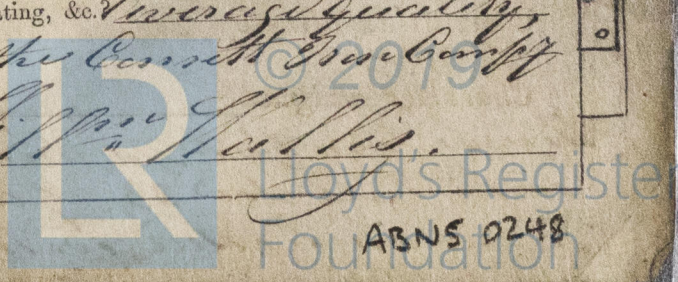 ting, &c.? Average quality,
the Consett Iron Compy
Willm Wallis.
ABNS 0248
LR
© 2019
Lloyd's Register
Foundation